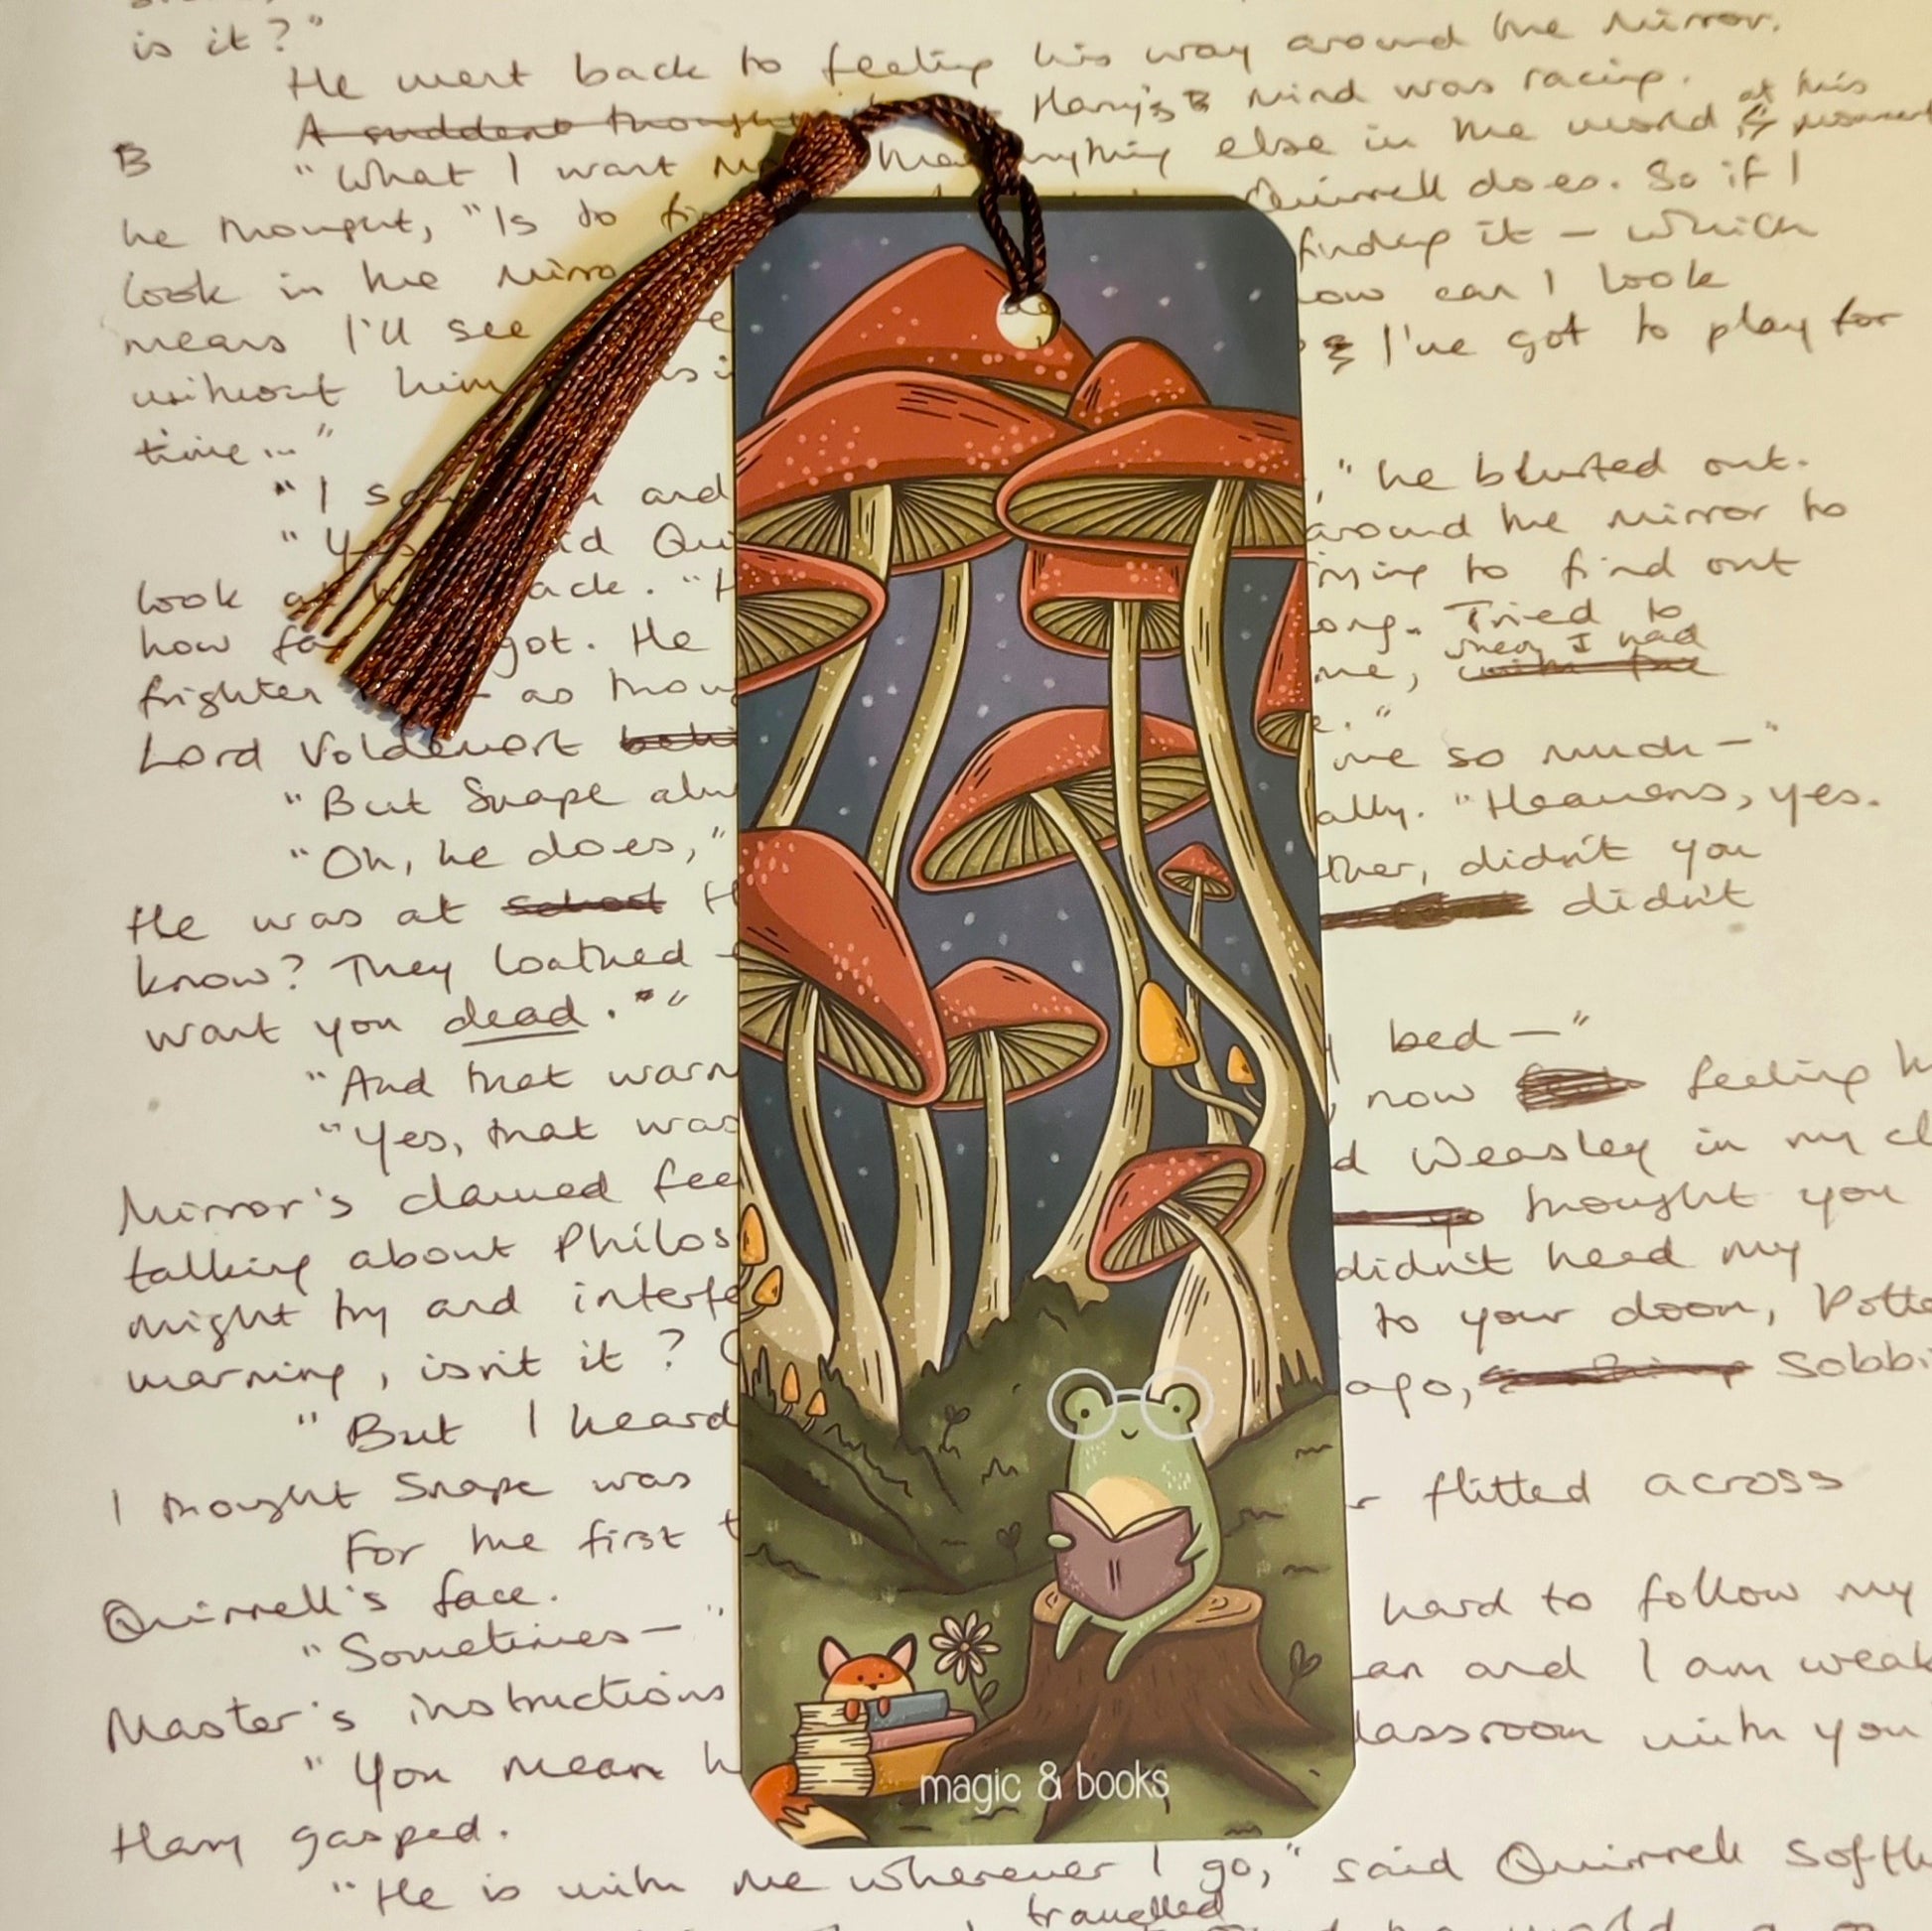 is it?"
He went back to feeling his way around the mirror.
A sudden though Harry's B mind was racing.
B "What I want anything else in the world at this moment
he thought, "Is to Quirrell does. So if I
look in the mirro finding it – which
means I'll see ow can I look
without him I've got to play for
time..."
"I and ," he blurted out.
id Qui around the mirror to
look ack. "H rying to find out
how got. He ong. Tried to
frighten – as thou me, with the when I had
Lord Voldemort behi e."
me so much –"
"But Snape alw ally. "Heavens, yes.
"Oh, he does," ther, didn't you
He was at school H didn't
know? They loathed
want you dead."
bed –"
"And that warn now feeling
"Yes, that was d Weasley in my cl
Mirror's clawed fee thought you
talking about Philos didn't heed my
might try and interfe to your doom, Potte
warning, isn't it? ago, Sobbi
"But I heard
I thought Snape was
For the first t r flitted across
Quirrell's face.
"Sometimes – " hard to follow my
Master's instructions an and I am weak
lassroom with you
"You mean h
Harry gasped.
"He is with me wherever I go," said Quirrell softl
travelled
magic & books